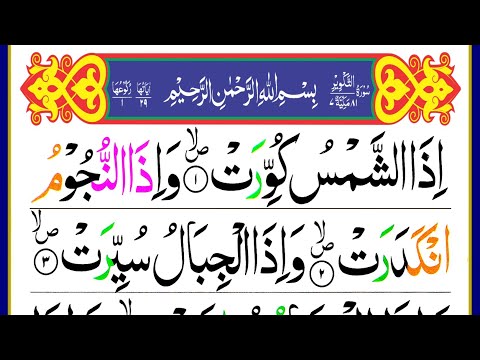 سُوۡرَةُ التَّكۡوِيۡرِ ٨١ مَكِّيَّةٌ ٧ بِسۡمِ اللّٰهِ الرَّحۡمٰنِ الرَّحِيۡمِ اٰيَاتُهَا ٢٩ رُكُوۡعُهَا ١
اِذَا الشَّمۡسُ كُوِّرَتۡ ۙ‏ۖ ﴿۱﴾ وَاِذَا النُّجُوۡمُ
انۡكَدَرَتۡ ۙ‏ۖ ﴿۲﴾ وَاِذَا الۡجِبَالُ سُيِّرَتۡ ۙ‏ۖ ﴿۳﴾